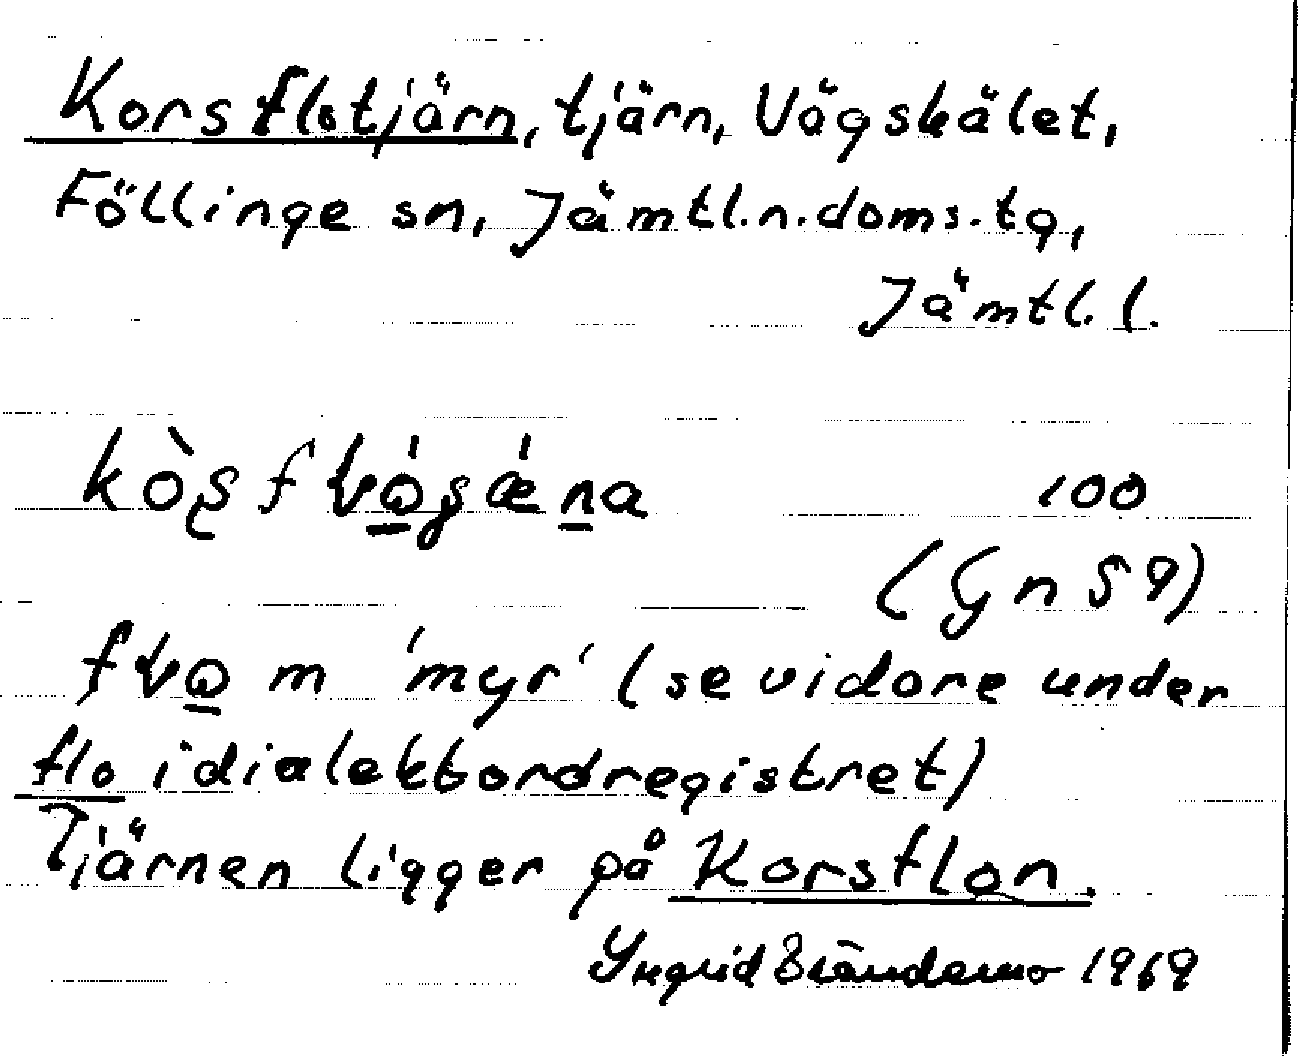 Korsflotjärn, tjärn, Vågskälet,
Föllinge sn, Jämtl.n.doms.tg,
Jämtl. l.
100
(Gn 59)
m 'myr' (se vidare under
flo i dialektordregistret)
Tjärnen ligger på Korsflon.
Ingrid 1969